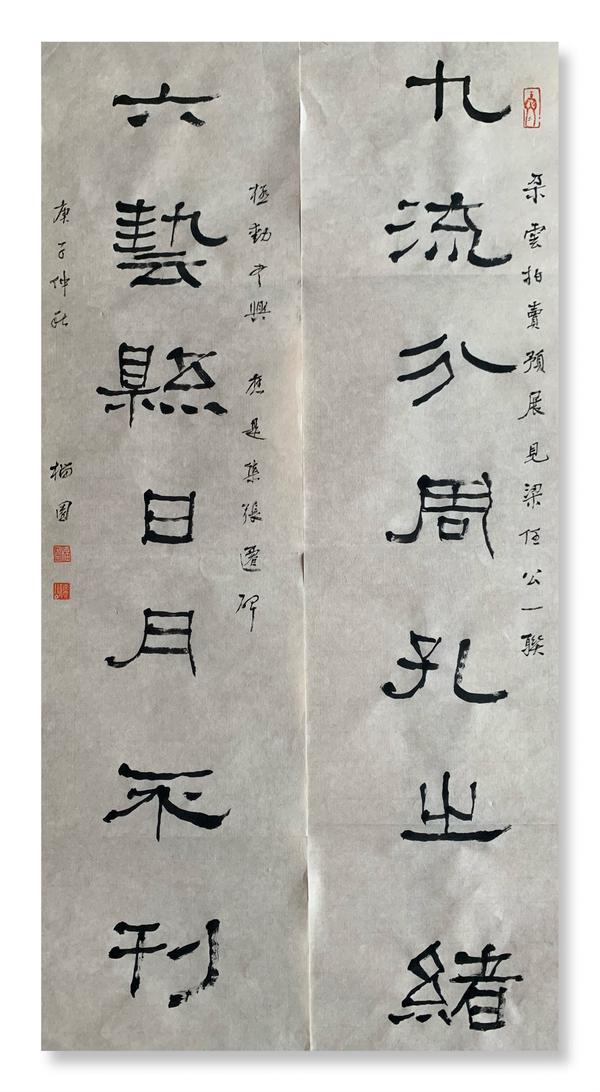 朵雲拍賣預展見梁任公一聯
九流分周孔之緒
極動興 應是集張遷碑
六藝縣日月不刊
庚子仲秋 園